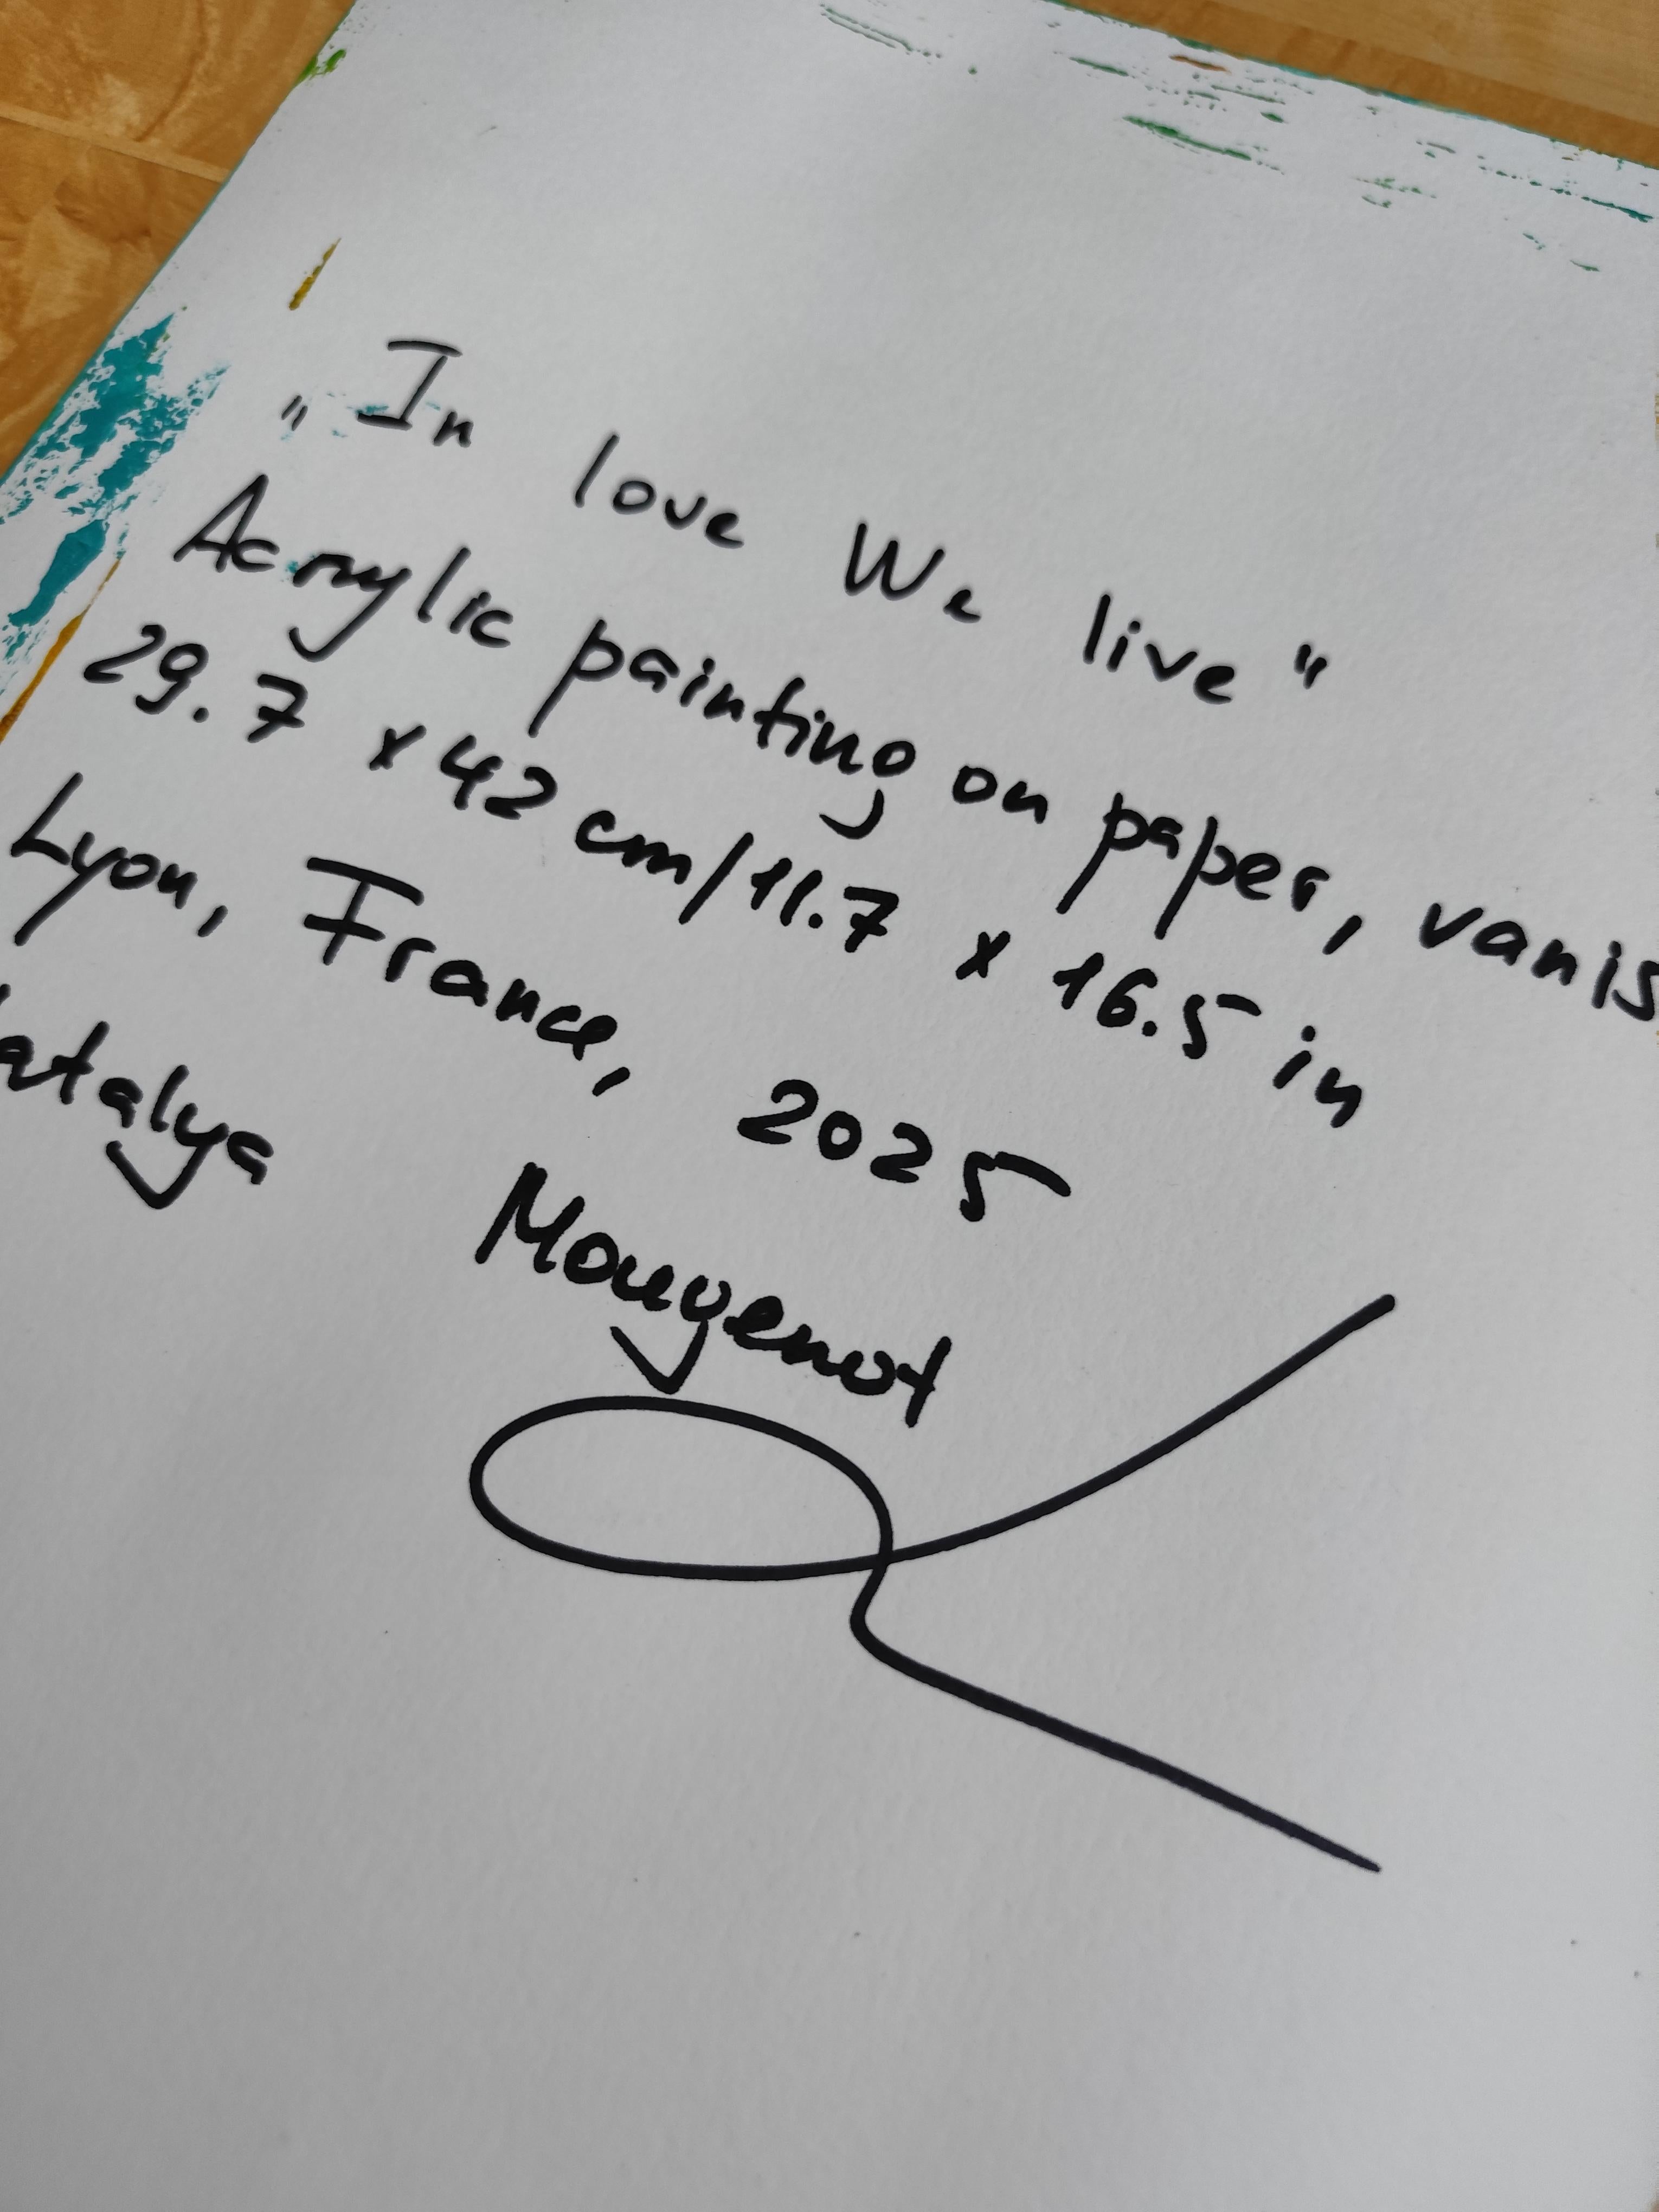 „In love We live"
Acrylic painting on paper, vanis
29.7 x 42 cm/11.7 x 16.5 in
Lyon, France, 2025
atalya Mougenot